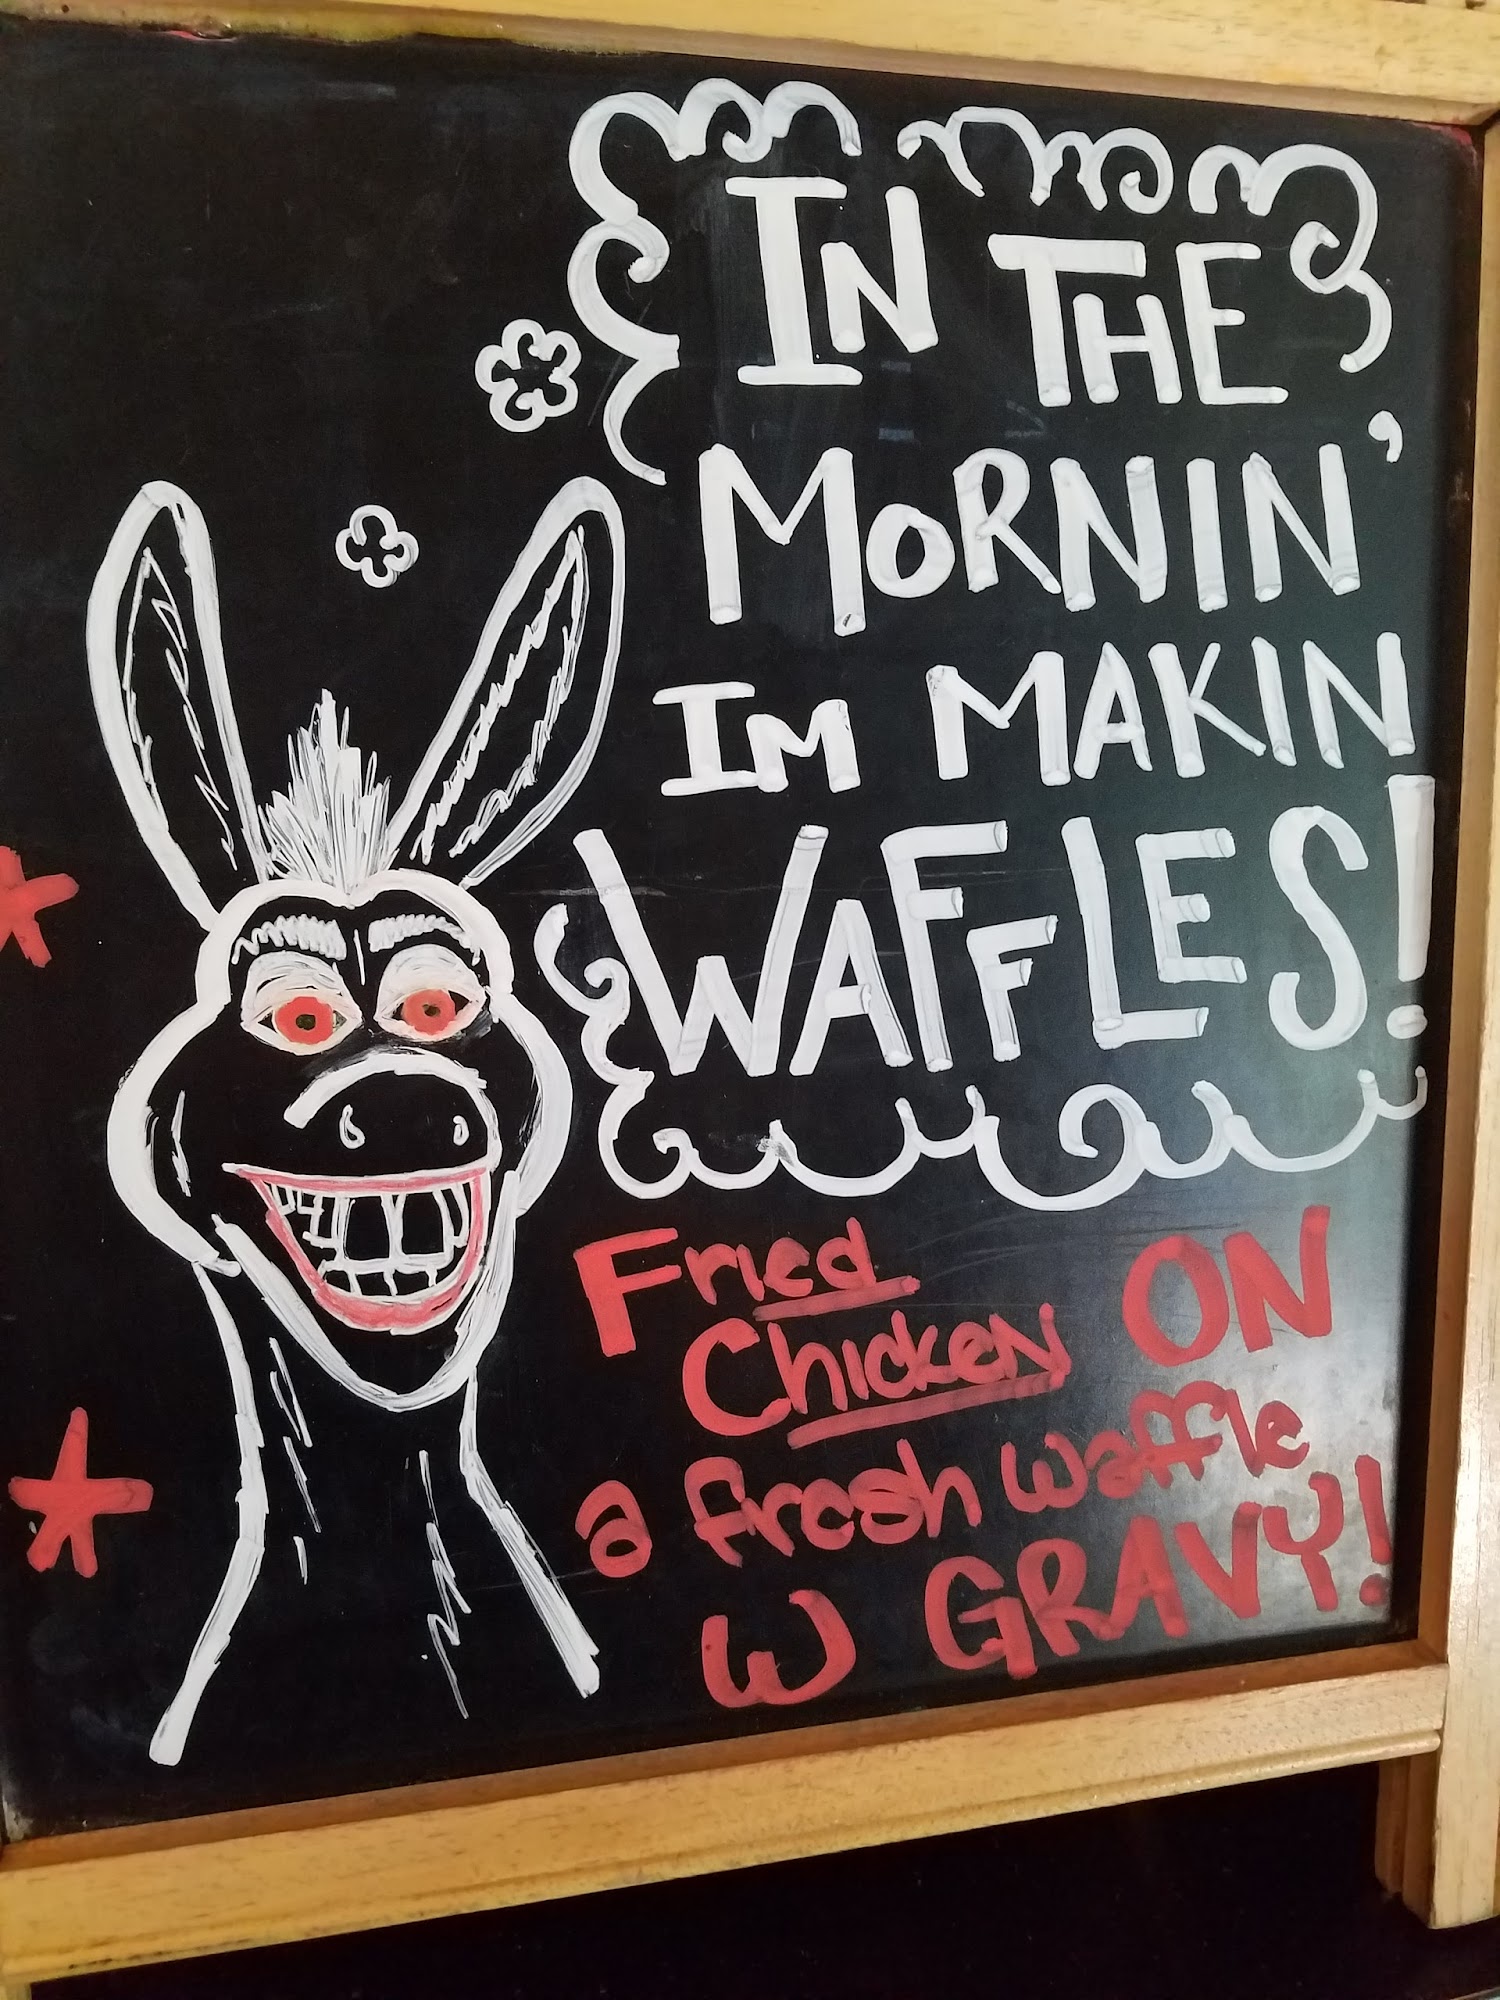 IN THE
MORNIN'
IM MAKIN
WAFFLES!
Fried
Chicken ON
a fresh waffle
W GRAVY!